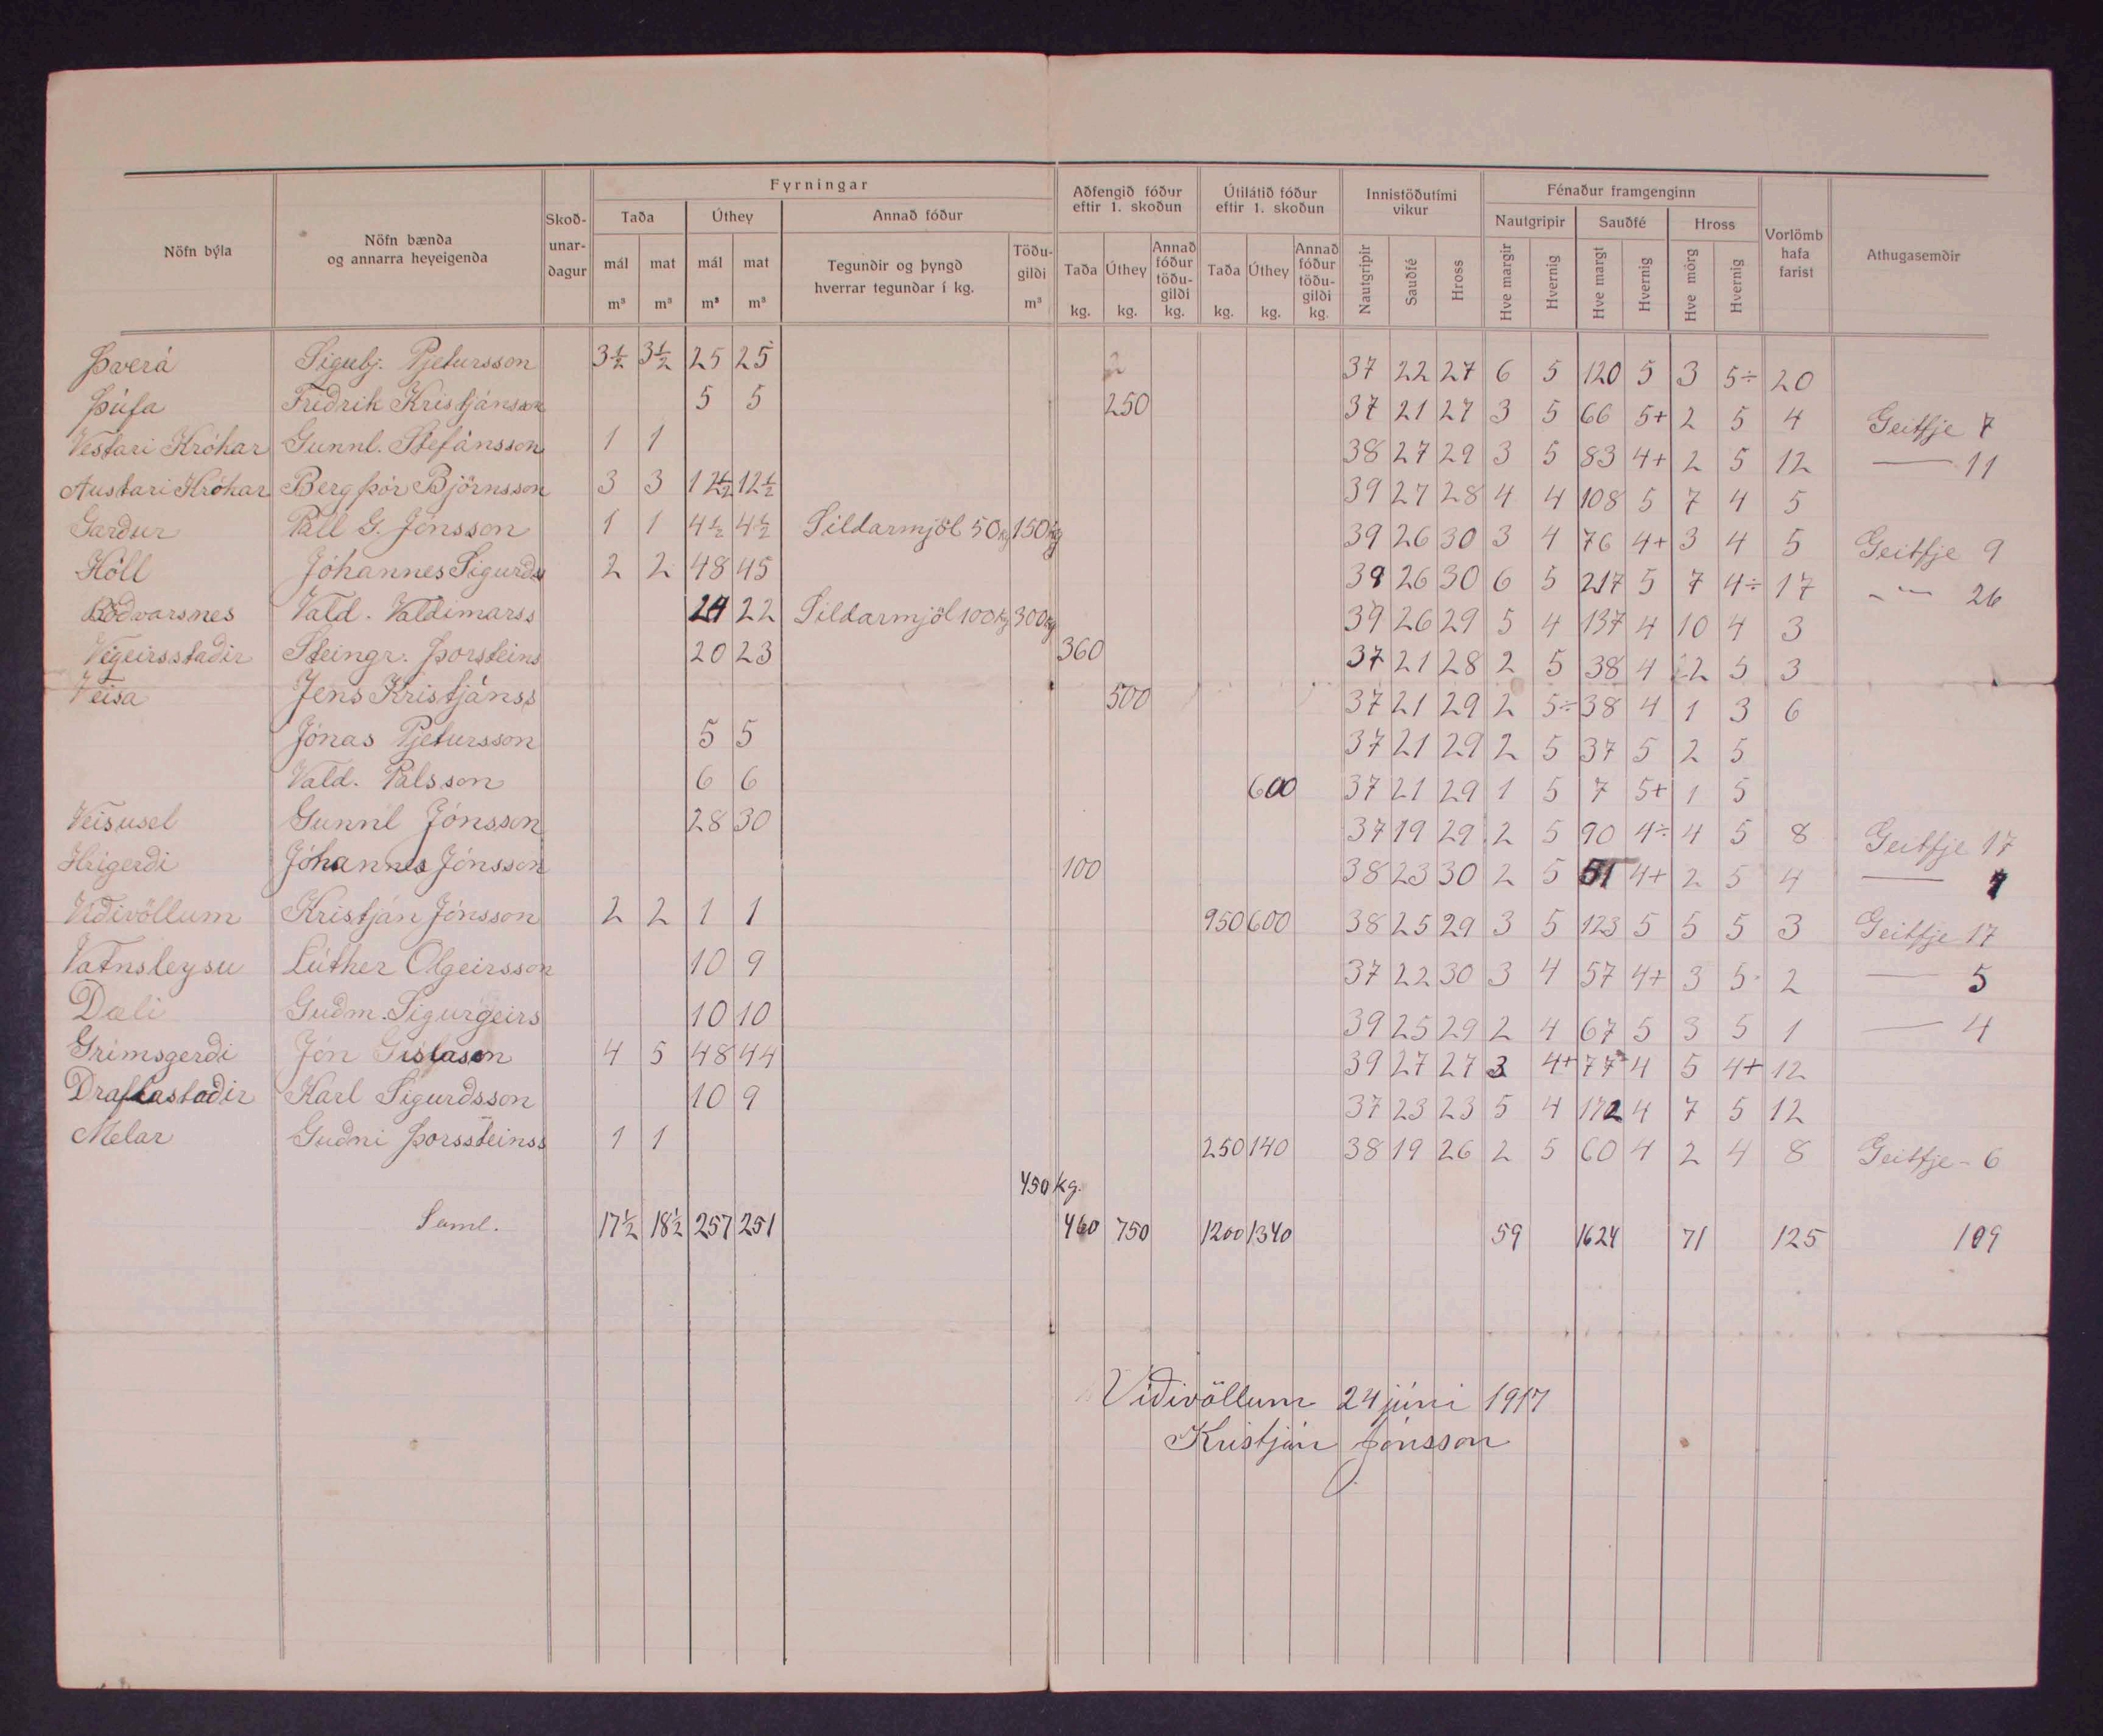 Fyrningar
Aðfengið fóður eftir 1. skoðun
Útilátið fóður eftir 1. skoðun
Innistöðutími vikur
Fénaður framgenginn
Nöfn býla
Nöfn bænda og annarra heyeigenda
Skoð-unar-dagur
Taða
Úthey
Annað fóður
Nautgripir
Sauðfé
Hross
Vorlömb hafa farist
Athugasemdir
mál m³ mat m³ mál m³ mat m³
Tegundir og þyngd hverrar tegundar í kg.
Töðu-gildi m³
Taða kg. Úthey kg. Annað fóður töðu-gildi kg.
Taða kg. Úthey kg. Annað fóður töðu-gildi kg.
Nautgripir Sauðfé Hross
Hve margir Hvernig Hve margt Hvernig Hve mörg Hvernig
Þverá Sigurbj. Pjetursson 3½ 3½ 25 25 37 22 27 6 5 120 5 3 5÷ 20
Þúfa Friðrik Kristjánsson 5 5 250 37 21 27 3 5 66 5+ 2 5 4 Geitfje 7
Vestari Krókar Gunnl. Stefánsson 1 1 38 27 29 3 5 83 4+ 2 5 12 — 11
Austari Krókar Bergþór Björnsson 3 3 12½ 12½ 39 27 28 4 4 108 5 7 4 5
Garður Páll G. Jónsson 1 1 4½ 4½ Síldarmjöl 50 kg 150 kg 39 26 30 3 4 76 4+ 3 4 5 Geitfje 9
Höll Jóhannes Sigurðs 2 2 48 45 39 26 30 6 5 217 5 7 4÷ 17 - " - 26
Böðvarsnes Vald. Valdimarss 24 22 Síldarmjöl 100 kg 300 kg 39 26 29 5 4 137 4 10 4 3
Végeirsstaðir Steingr. Þorsteins 20 23 360 37 21 28 2 5 38 4 2 5 3
Veisa Jens Kristjánss 500 37 21 29 2 5÷ 38 4 1 3 6
Jónas Pjetursson 5 5 37 21 29 2 5 37 5 2 5
Vald. Pálsson 6 6 600 37 21 29 1 5 7 5+ 1 5
Veisusel Gunnl Jónsson 28 30 37 19 29 2 5 90 4÷ 4 5 8 Geitfje 17
Hrigerði Jóhannes Jónsson 100 38 23 30 2 5 51 4+ 2 5 4 —
Viðivöllum Kristján Jónsson 2 2 1 1 950 600 38 25 29 3 5 123 5 5 5 3 Geitfje 17
Vatnsleysu Lúther Olgeirsson 10 9 37 22 30 3 4 57 4+ 3 5 2 — 5
Dæli Guðm. Sigurgeirs 10 10 39 25 29 2 4 67 5 3 5 1 — 4
Grímsgerði Jón Gíslason 4 5 48 44 39 27 27 3 4+ 77 4 5 4+ 12
Draflastaðir Karl Sigurðsson 10 9 37 23 23 5 4 172 4 7 5 12
Melar Guðni Þorssteinss 1 1 250 140 38 19 26 2 5 60 4 2 4 8 Geitfje - 6
450 kg.
Saml. 17½ 18½ 257 251 460 750 1200 1340 59 1624 71 125 109
Viðivöllum 24 júni 1917
Kristján Jónsson